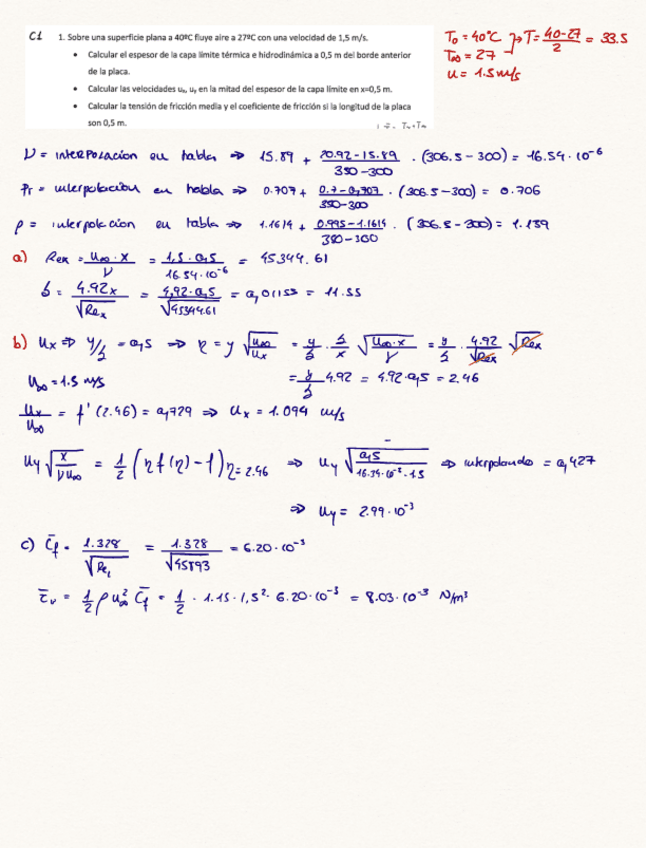 C1 1. Sobre una superficie plana a 40ºC fluye aire a 27ºC con una velocidad de 1,5 m/s.
• Calcular el espesor de la capa límite térmica e hidrodinámica a 0,5 m del borde anterior
de la placa.
• Calcular las velocidades uₓ, uᵧ en la mitad del espesor de la capa límite en x=0,5 m.
• Calcular la tensión de fricción media y el coeficiente de fricción si la longitud de la placa
son 0,5 m.
T₀ = 40ºC
T∞ = 27
→ T = (40-27)/2 = 33.5
u = 1.5 m/s
ν = interpolacion en tabla ⇒ 15.89 + (20.92-15.89)/(350-300) · (306.5-300) = 16.54·10⁻⁶
Pr = interpolación en tabla ⇒ 0.707 + (0.7-0,707)/(350-300) · (306.5-300) = 0.706
ρ = interpolacion en tabla ⇒ 1.1614 + (0.995-1.1614)/(350-300) · (306.5-300) = 1.139
a) Reₓ = u∞·x/ν = 1,5·0,5/16.54·10⁻⁶ = 45344.61
δ = 4.92x/√Reₓ = 4,92·0,5/√45344.61 = 0,01155 = 11.55
b) uₓ ⇒ y/δ = 0,5 ⇒ η = y √(u∞/uₓ) = y/δ · δ/x √(u∞·x/ν) = y/δ · 4.92/√Reₓ √Reₓ
u∞ = 1.5 m/s
= y/δ 4.92 = 4.92·0,5 = 2.46
uₓ/u∞ = f'(2.46) = 0,729 ⇒ uₓ = 1.094 m/s
uᵧ √(x/νu∞) = 1/2 (ηf'(η) - f) η=2.46 ⇒ uᵧ √(0,5/16.54·10⁻⁶·1.5) ⇒ interpolando = 0,427
⇒ uᵧ = 2.99·10⁻³
c) C̄f = 1.328/√Re_L = 1.328/√45893 = 6.20·10⁻³
τ̄ᵥ = 1/2 ρ u∞² C̄f = 1/2 · 1.15 · 1,5² · 6.20·10⁻³ = 8.03·10⁻³ N/m²